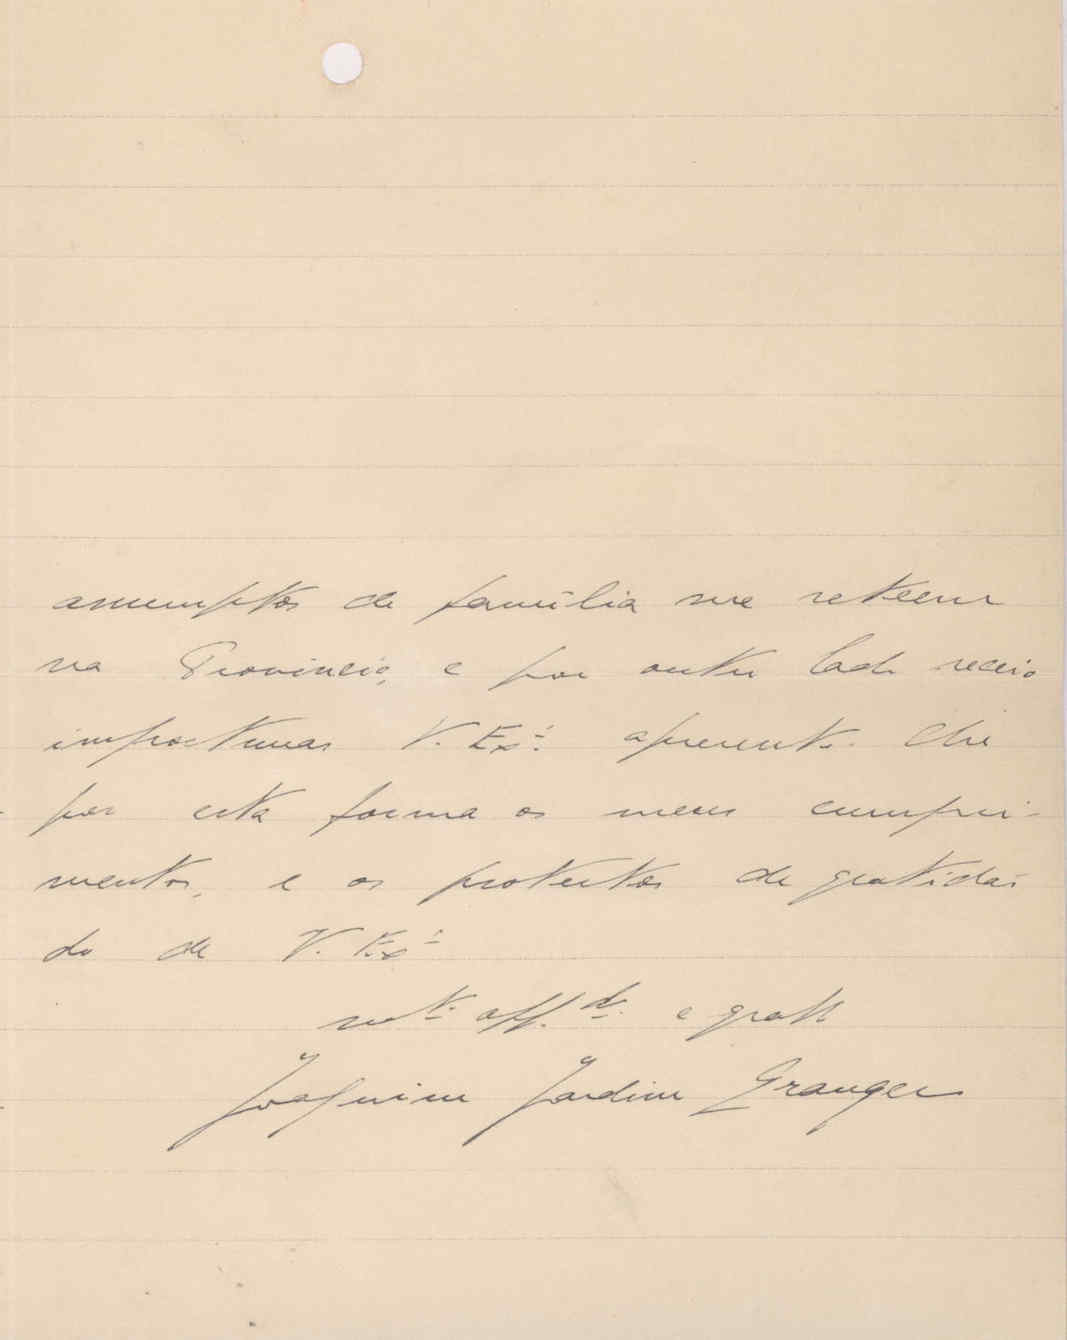 assumptos de família me reteem
na Provincia, e por outro lado receio
importunar V. Exª. apresento-lhe
por esta forma os meus cumpri-
mentos, e os protestos de gratidão
do de V. Exª
mtº affdº. e grato
Joaquim Jardim Granger